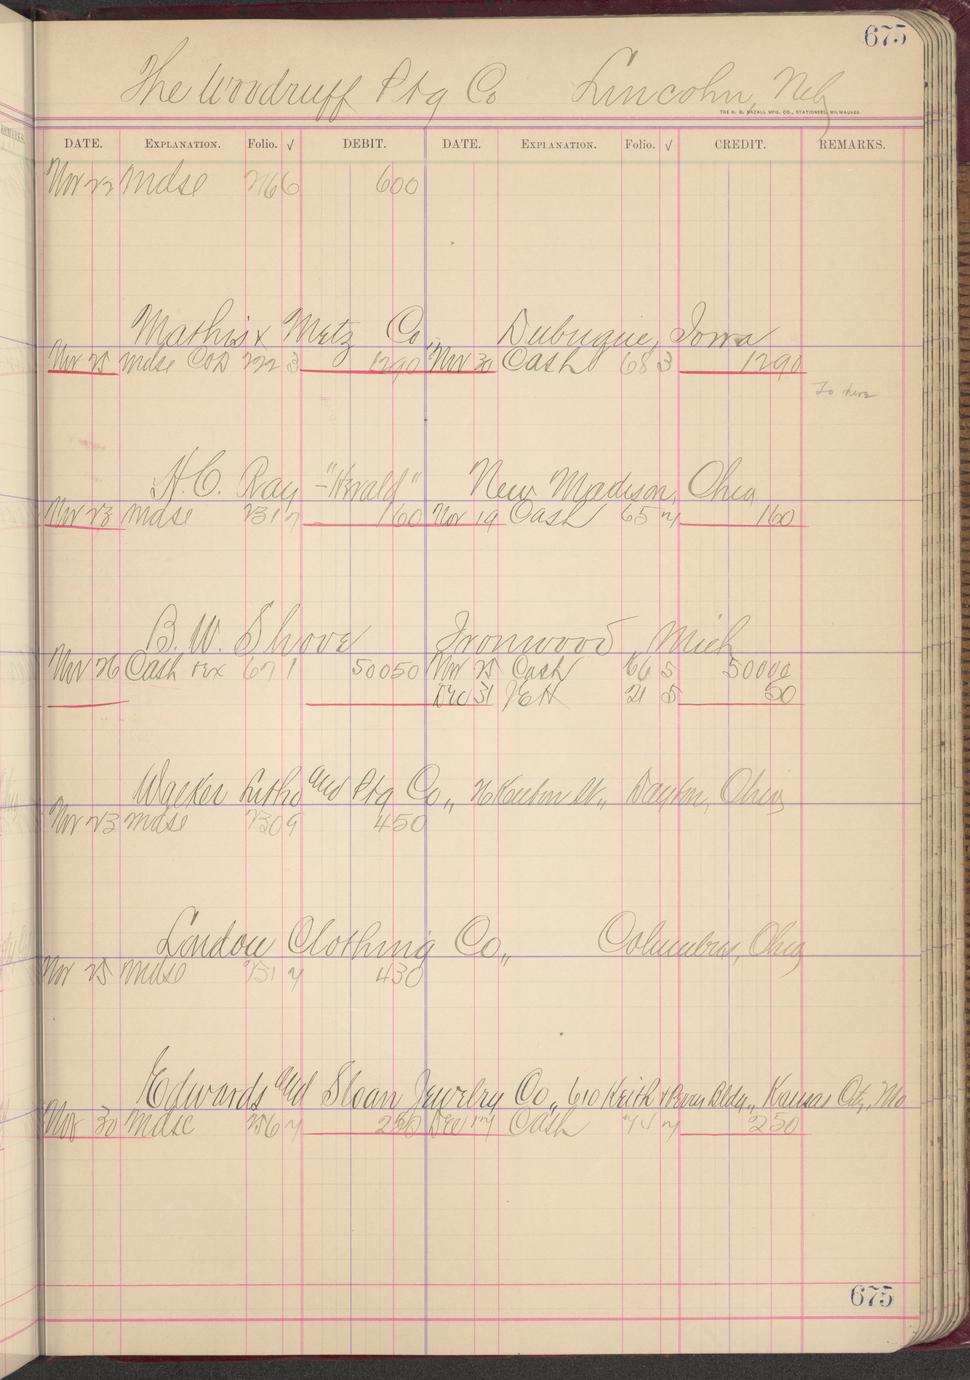 675
The Woodruff Ptg Co Lincoln, Neb
THE H. G. RAZALL MFG. CO., STATIONERS, MILWAUKEE.
DATE. EXPLANATION. Folio. √ DEBIT. DATE. EXPLANATION. Folio. √ CREDIT. REMARKS.
Nov 22 Mdse 266 600
Mathis & Metz Co., Dubuque, Iowa
Nov 25 Mdse COD 222 3 1290 Nov 30 Cash 68 3 1290
To here
H.C. Ray - "Herald" New Madison, Ohio
Nov 23 Mdse 231 160 Nov 19 Cash 65 160
B. W. Shove Ironwood Mich
Nov 26 Cash 67 1 50050 Nov 25 Cash 66 5 50000
Dec 31 21 5 50
Walker Litho and Ptg Co., Dayton, Ohio
Nov 23 Mdse 230 9 450
London Clothing Co., Columbus, Ohio
Nov 25 Mdse 231 430
Edwards and Sloan Jewelry Co., 610 Keith & Perry Bldg., Kansas City, Mo
Nov 30 Mdse 256 250 Dec Cash 250
675